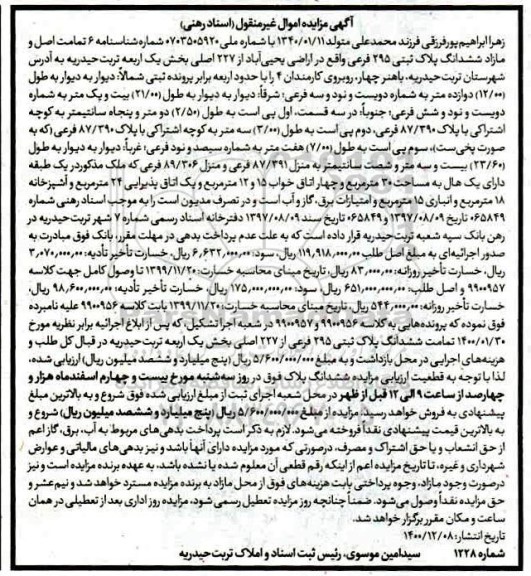 آگهی مزایده اموال غیرمنقول (اسناد رهنی)
زهرا ابراهیم پور فرزقی فرزند محمدعلی متولد ۱۳۴۰/۰۱/۱۱ با شماره ملی ۰۷۰۳۵۰۵۹۲۰ شماره شناسنامه ۶ تمامت اصل و
مازاد ششدانگ پلاک ثبتی ۲۹۵ فرعی واقع در اراضی یحیی‌آباد از ۲۲۷ اصلی بخش یک اربعه تربت حیدریه به آدرس
شهرستان تربت حیدریه، باهنر چهار، روبروی کارمندان ۴ را با حدود اربعه برابر پرونده ثبتی شمالاً: دیوار به دیوار به طول
(۱۲/۰۰) دوازده متر به شماره دویست و نود و سه فرعی؛ شرقاً: دیوار به دیوار به طول (۲۱/۰۰) بیست و یک متر به شماره
دویست و نود و شش فرعی؛ جنوباً: در سه قسمت، اول پی است به طول (۲/۵۰) دو متر و پنجاه سانتیمتر به کوچه
اشتراکی با پلاک ۸۷/۳۹۰ فرعی، دوم پی است به طول (۳/۰۰) سه متر به کوچه اشتراکی با پلاک ۸۷/۳۹۰ فرعی (که به
صورت پخی‌ست)، سوم پی است به طول (۷/۰۰) هفت متر به شماره سیصد و نود فرعی؛ غرباً: دیوار به دیوار به طول
(۲۳/۶۰) بیست و سه متر و شصت سانتیمتر به منزل ۸۷/۳۹۱ فرعی و منزل ۸۹/۳۰۶ فرعی که ملک مذکور در یک طبقه
دارای یک هال به مساحت ۲۰ مترمربع و چهار اتاق خواب ۱۵ و ۱۲ مترمربع و یک اتاق پذیرایی ۲۴ مترمربع و آشپزخانه
۱۸ مترمربع و انباری ۱۵ مترمربع و امتیازات برق، گاز و آب است و در تصرف مدیون است را به موجب اسناد رهنی شماره
۰۶۵۸۴۹ تاریخ ۱۳۹۷/۰۸/۰۹ و ۰۶۵۸۴۹ تاریخ سند ۱۳۹۷/۰۸/۰۹ دفترخانه اسناد رسمی شماره ۷ شهر تربت حیدریه در
رهن بانک سپه شعبه تربت حیدریه قرار داده است که به علت عدم پرداخت بدهی در مهلت مقرر، بانک فوق مبادرت به
صدور اجرائیه‌ای به مبلغ اصل طلب ۱۱۹,۹۱۸,۰۰۰/۰۰ ریال، سود: ۶,۶۳۲,۰۰۰/۰۰ ریال، خسارت تأخیر تأدیه: ۳,۰۷۰,۰۰۰/۰۰
ریال، خسارت تأخیر روزانه: ۸۳,۰۰۰/۰۰ ریال، تاریخ مبنای محاسبه خسارت: ۱۳۹۹/۱۱/۲۰ تا وصول کامل جهت کلاسه
۹۹۰۰۹۵۷ و اصل طلب: ۶۵۱,۰۰۰,۰۰۰/۰۰ ریال، سود: ۱۷۵,۰۰۰,۰۰۰/۰۰ ریال، خسارت تأخیر تأدیه: ۹۸,۶۰۰,۰۰۰/۰۰ ریال،
خسارت تأخیر روزانه: ۵۴۴,۰۰۰/۰۰ ریال، تاریخ مبنای محاسبه خسارت: ۱۳۹۹/۱۱/۲۰ بابت کلاسه ۹۹۰۰۹۵۶ علیه نامبرده
فوق نموده که پرونده‌هایی به کلاسه ۹۹۰۰۹۵۶ و ۹۹۰۰۹۵۷ در شعبه اجرا تشکیل، که پس از ابلاغ اجرائیه برابر نظریه مورخ
۱۴۰۰/۰۱/۳۰ تمامت ششدانگ پلاک ثبتی ۲۹۵ فرعی از ۲۲۷ اصلی بخش یک اربعه تربت حیدریه در قبال کل طلب و
هزینه‌های اجرایی در محل بازداشت و به مبلغ ۵/۶۰۰/۰۰۰/۰۰۰ ریال (پنج میلیارد و ششصد میلیون ریال) ارزیابی شده،
لذا با توجه به قطعیت ارزیابی مزایده ششدانگ پلاک فوق در روز سه‌شنبه مورخ بیست و چهارم اسفندماه هزار و
چهارصد از ساعت ۹ الی ۱۲ قبل از ظهر در محل شعبه اجرای ثبت از مبلغ ارزیابی شده فوق شروع و به بالاترین مبلغ
پیشنهادی به فروش خواهد رسید. مزایده از مبلغ ۵/۶۰۰/۰۰۰/۰۰۰ ریال (پنج میلیارد و ششصد میلیون ریال) شروع و
به بالاترین قیمت پیشنهادی نقداً فروخته می‌شود. لازم به ذکر است پرداخت بدهی‌های مربوط به آب، برق، گاز اعم
از حق انشعاب و یا حق اشتراک و مصرف، درصورتی که مورد مزایده دارای آنها باشد و نیز بدهی‌های مالیاتی و عوارض
شهرداری و غیره، تا تاریخ مزایده اعم از اینکه رقم قطعی آن معلوم شده یا نشده باشد، به عهده برنده مزایده است و نیز
درصورت وجود مازاد، وجوه پرداختی بابت هزینه‌های فوق از محل مازاد به برنده مزایده مسترد خواهد شد و نیم‌عشر و
حق مزایده نقداً وصول می‌شود. ضمناً چنانچه روز مزایده تعطیل رسمی شود، مزایده روز اداری بعد از تعطیلی در همان
ساعت و مکان مقرر برگزار خواهد شد.
تاریخ انتشار: ۱۴۰۰/۱۲/۰۸
شماره ۱۲۲۸ سیدامین موسوی، رئیس ثبت اسناد و املاک تربت حیدریه